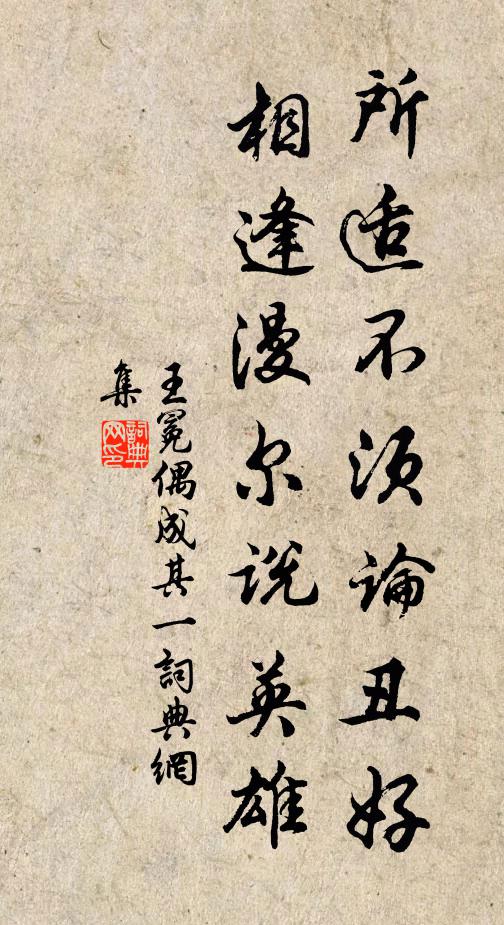 所适不须論丑好
相逢漫尔说英雄
王冕偶成其一詞典網
集
詞典网印